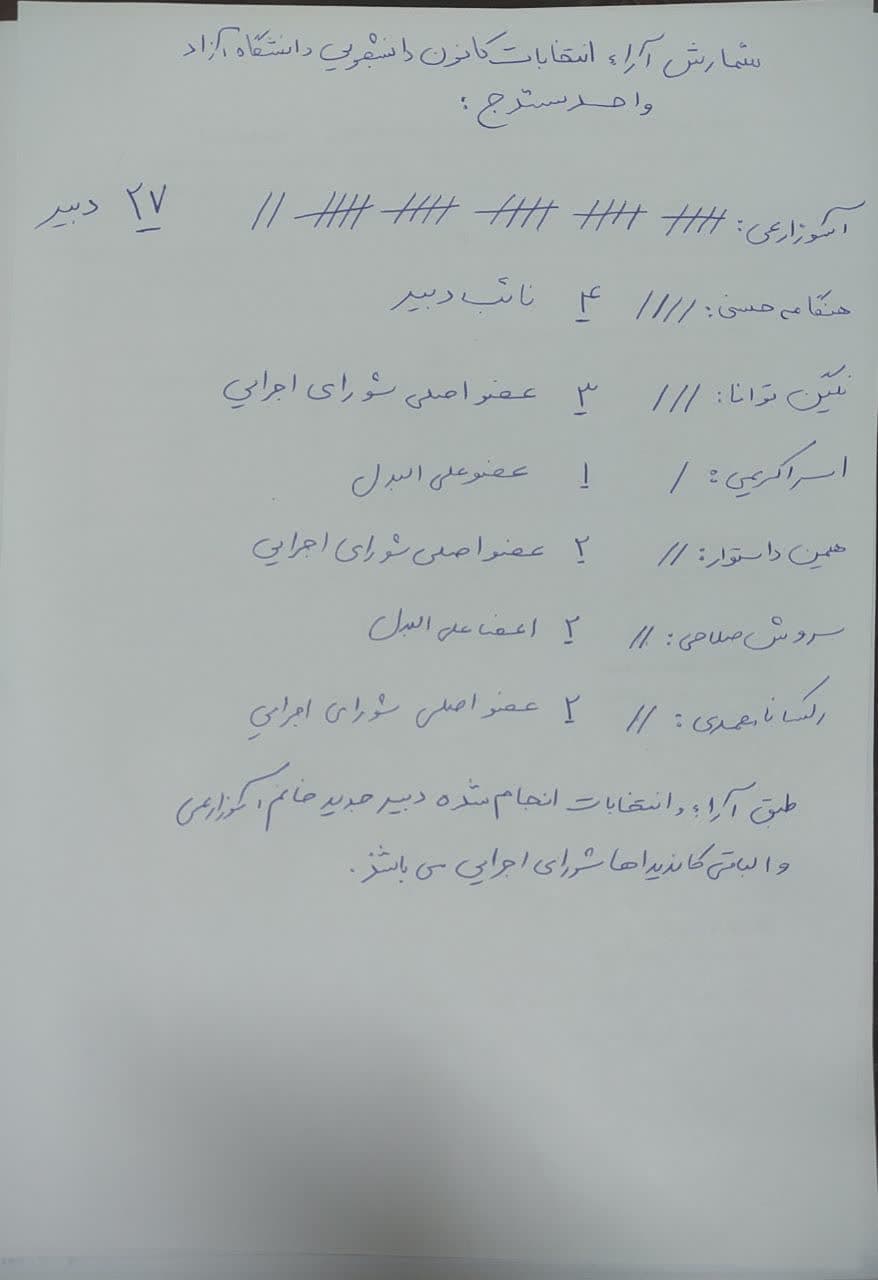 شمارش آراء انتخابات کانون دانشجویی دانشگاه آزاد
واحد سنندج :
آسو زارعی : //// //// //// //// //// // ۲۷ دبیر
هنگامه حسنی : //// ۴ نائب دبیر
نگین توانا : /// ۳ عضو اصلی شورای اجرایی
اسرا کریمی : / ۱ عضو علی البدل
همین داستوار : // ۲ عضو اصلی شورای اجرایی
سروش صلاحی : // ۲ اعضا علی البدل
رکسانا محمدی : // ۲ عضو اصلی شورای اجرایی
طبق آراء و انتخابات انجام شده دبیر جدید خانم آسو زارعی
و الباقی کاندیداها شورای اجرایی می باشند .